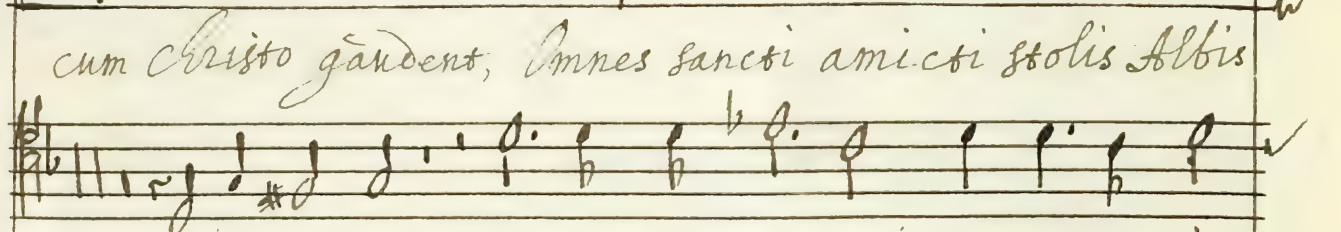 cum Christo gaudent, Omnes sancti amicti stolis Albis